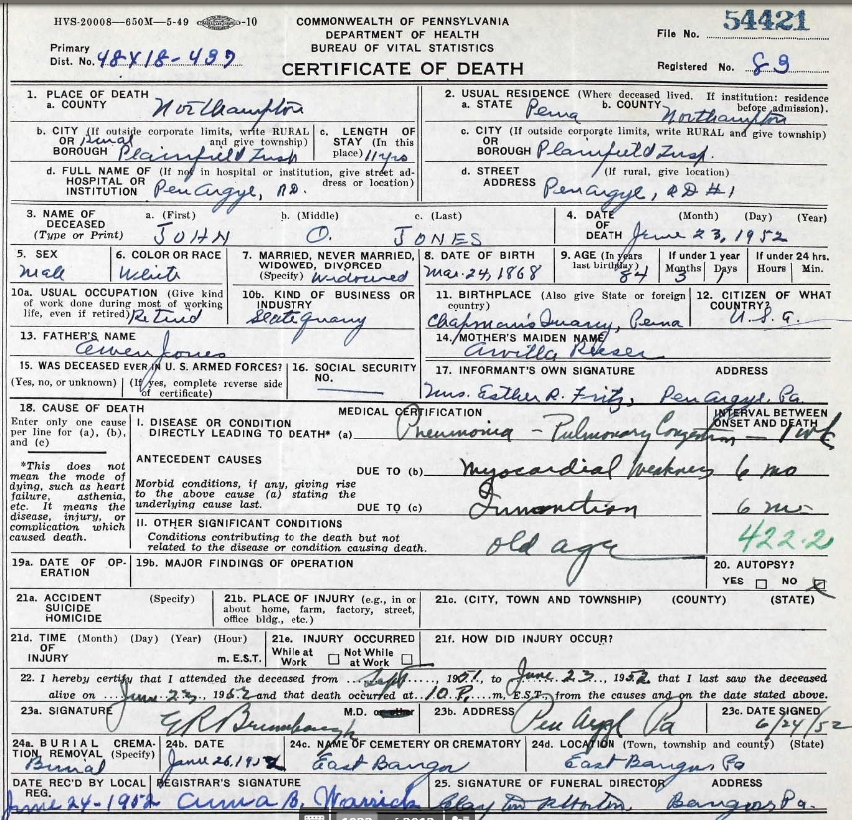 HVS-20008—650M—5-49 -10
COMMONWEALTH OF PENNSYLVANIA
DEPARTMENT OF HEALTH
BUREAU OF VITAL STATISTICS
CERTIFICATE OF DEATH
File No. 54421
Primary
Dist. No. 48X18-439
Registered No. 89
1. PLACE OF DEATH
a. COUNTY Northampton
2. USUAL RESIDENCE (Where deceased lived. If institution: residence before admission).
a. STATE Penna b. COUNTY Northampton
b. CITY (If outside corporate limits, write RURAL and give township)
OR Rural
BOROUGH Plainfield Twsp
c. LENGTH OF STAY (In this place) 11 yrs
c. CITY (If outside corporate limits, write RURAL and give township)
OR
BOROUGH Plainfield Twsp.
d. FULL NAME OF (If not in hospital or institution, give street address or location)
HOSPITAL OR
INSTITUTION Pen Argyl, RD.
d. STREET (If rural, give location)
ADDRESS Pen Argyl, RD #1
3. NAME OF DECEASED (Type or Print)
a. (First) b. (Middle) c. (Last)
JOHN O. JONES
4. DATE OF DEATH (Month) (Day) (Year)
June 23, 1952
5. SEX
Male
6. COLOR OR RACE
White
7. MARRIED, NEVER MARRIED, WIDOWED, DIVORCED (Specify) Widowed
8. DATE OF BIRTH
Mar. 24, 1868
9. AGE (In years last birthday) 84
If under 1 year
Months 3 Days
If under 24 hrs.
Hours Min.
10a. USUAL OCCUPATION (Give kind of work done during most of working life, even if retired) Retired
10b. KIND OF BUSINESS OR INDUSTRY
Slate quarry
11. BIRTHPLACE (Also give State or foreign country)
Chapman's Quarry, Penna
12. CITIZEN OF WHAT COUNTRY?
U.S.A.
13. FATHER'S NAME
Owen Jones
14. MOTHER'S MAIDEN NAME
Arvilla Reeser
15. WAS DECEASED EVER IN U. S. ARMED FORCES?
(Yes, no, or unknown) (If yes, complete reverse side of certificate)
16. SOCIAL SECURITY NO.
17. INFORMANT'S OWN SIGNATURE ADDRESS
Mrs. Esther R. Fritz, Pen Argyl, Pa.
18. CAUSE OF DEATH
Enter only one cause per line for (a), (b), and (c)
*This does not mean the mode of dying, such as heart failure, asthenia, etc. It means the disease, injury, or complication which caused death.
MEDICAL CERTIFICATION
INTERVAL BETWEEN ONSET AND DEATH
I. DISEASE OR CONDITION DIRECTLY LEADING TO DEATH* (a) Pneumonia - Pulmonary Congestion — 1 wk
ANTECEDENT CAUSES
Morbid conditions, if any, giving rise to the above cause (a) stating the underlying cause last.
DUE TO (b) Myocardial Weakness 6 mo
DUE TO (c) Inanition 6 mo
II. OTHER SIGNIFICANT CONDITIONS
Conditions contributing to the death but not related to the disease or condition causing death.
old age
422.2
19a. DATE OF OPERATION
19b. MAJOR FINDINGS OF OPERATION
20. AUTOPSY?
YES NO
21a. ACCIDENT SUICIDE HOMICIDE (Specify)
21b. PLACE OF INJURY (e.g., in or about home, farm, factory, street, office bldg., etc.)
21c. (CITY, TOWN AND TOWNSHIP) (COUNTY) (STATE)
21d. TIME OF INJURY (Month) (Day) (Year) (Hour)
m. E.S.T.
21e. INJURY OCCURRED
While at Work Not While at Work
21f. HOW DID INJURY OCCUR?
22. I hereby certify that I attended the deceased from Sept, 1951, to June 23, 1952 that I last saw the deceased
alive on June 23, 1952 and that death occurred at 10 P. m, E.S.T., from the causes and on the date stated above.
23a. SIGNATURE M.D.
E R Brumbaugh
23b. ADDRESS
Pen Argyl Pa
23c. DATE SIGNED
6/24/52
24a. BURIAL CREMATION, REMOVAL (Specify)
Burial
24b. DATE
June 26, 1952
24c. NAME OF CEMETERY OR CREMATORY
East Bangor
24d. LOCATION (Town, township and county) (State)
East Bangor Pa
DATE REC'D BY LOCAL REG.
June 24-1952
REGISTRAR'S SIGNATURE
Anna B. Warrick
25. SIGNATURE OF FUNERAL DIRECTOR ADDRESS
Bangor Pa.